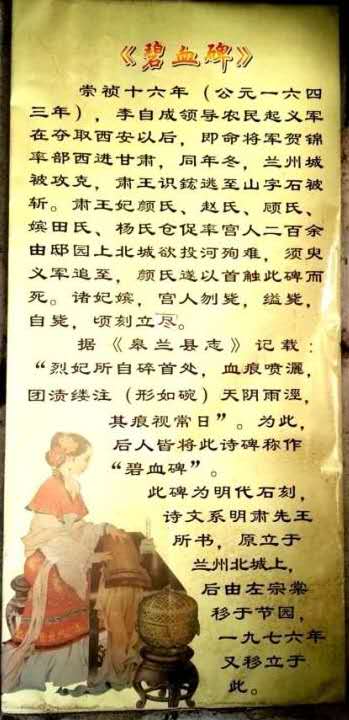 《碧血碑》
崇祯十六年（公元一六四
三年），李自成领导农民起义军
在夺取西安以后，即命将军贺锦
率部西进甘肃，同年冬，兰州城
被攻克，肃王识鋐逃至山字石被
斩。肃王妃颜氏、赵氏、顾氏、
嫔田氏、杨氏仓促率宫人二百余
由邸园上北城欲投河殉难，须臾
义军追至，颜氏遂以首触此碑而
死。诸妃嫔，宫人刎毙，缢毙，
自毙，顷刻立尽。
据《皋兰县志》记载：
“烈妃所自碎首处，血痕喷洒，
团渍缕注（形如碗）天阴雨溼，
其痕视常日”。为此，
后人皆将此诗碑称作
“碧血碑”。
此碑为明代石刻，
诗文系明肃先王
所书，原立于
兰州北城上，
后由左宗棠
移于节园，
一九七六年
又移立于
此。